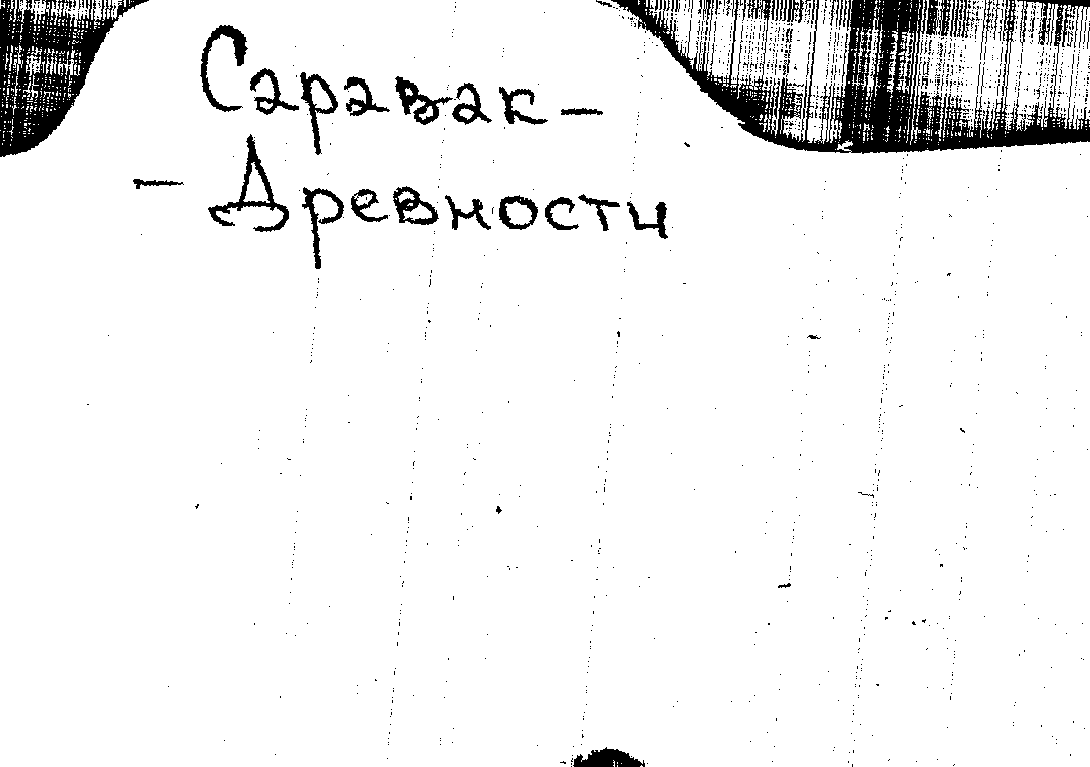 Саравак –
– Древности